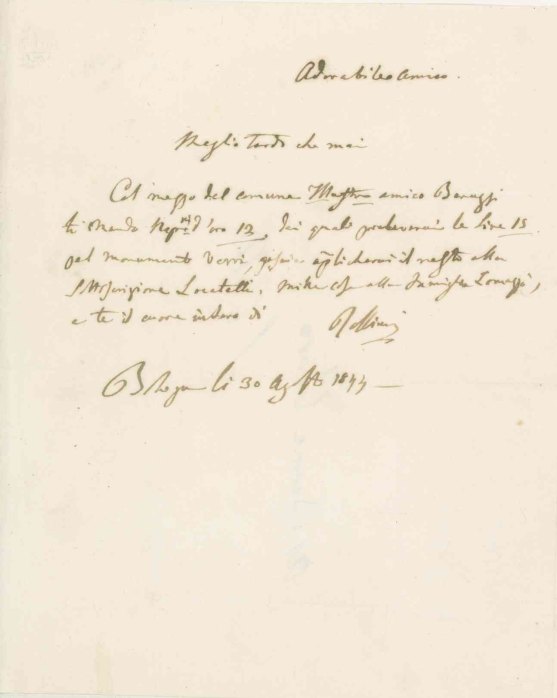 Adorabile Amico.
Meglio tardi che mai
Col mezzo del comune Maestro amico
ti mando d'oro 12, dei quali preleverai le Lire 15
pel monumento Verri, applicherai il resto alla
Sottoscrizione Locatelli. mille cose alla Famiglia
e te il cuore intero di
Rossini
Bologna li 30 Agsto 1844